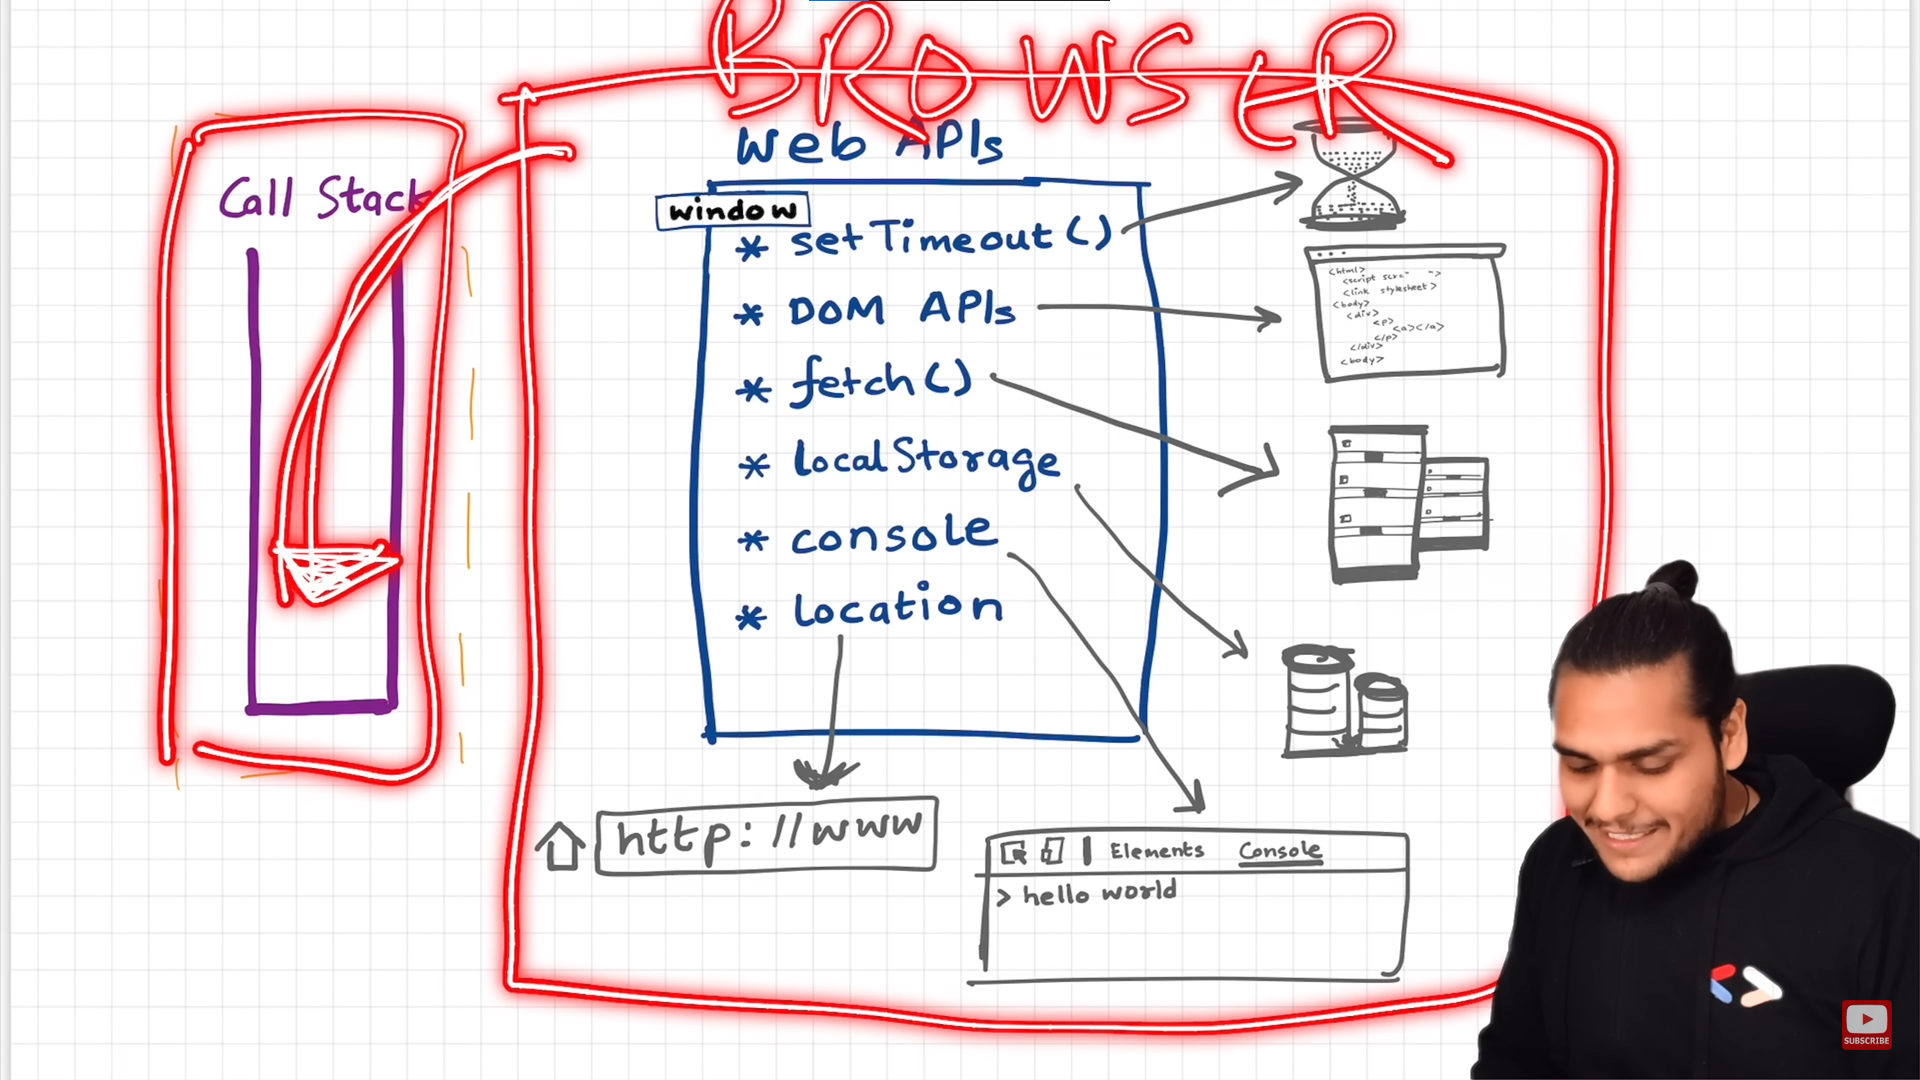 BROWSER
Web APIs
Call Stack
window
* setTimeout()
* DOM APIs
* fetch()
* localStorage
* console
* location
<html>
<script scr=" ">
<link stylesheet>
<body>
<div>
<p>
<a></a>
</p>
</div>
<body>
http://www
Elements Console
> hello world
SUBSCRIBE